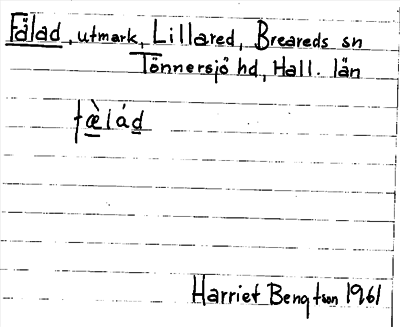 Fälad, utmark, Lillared, Breareds sn
Tönnersjö hd, Hall. län
fæ̀lád
Harriet Bengtson 1961